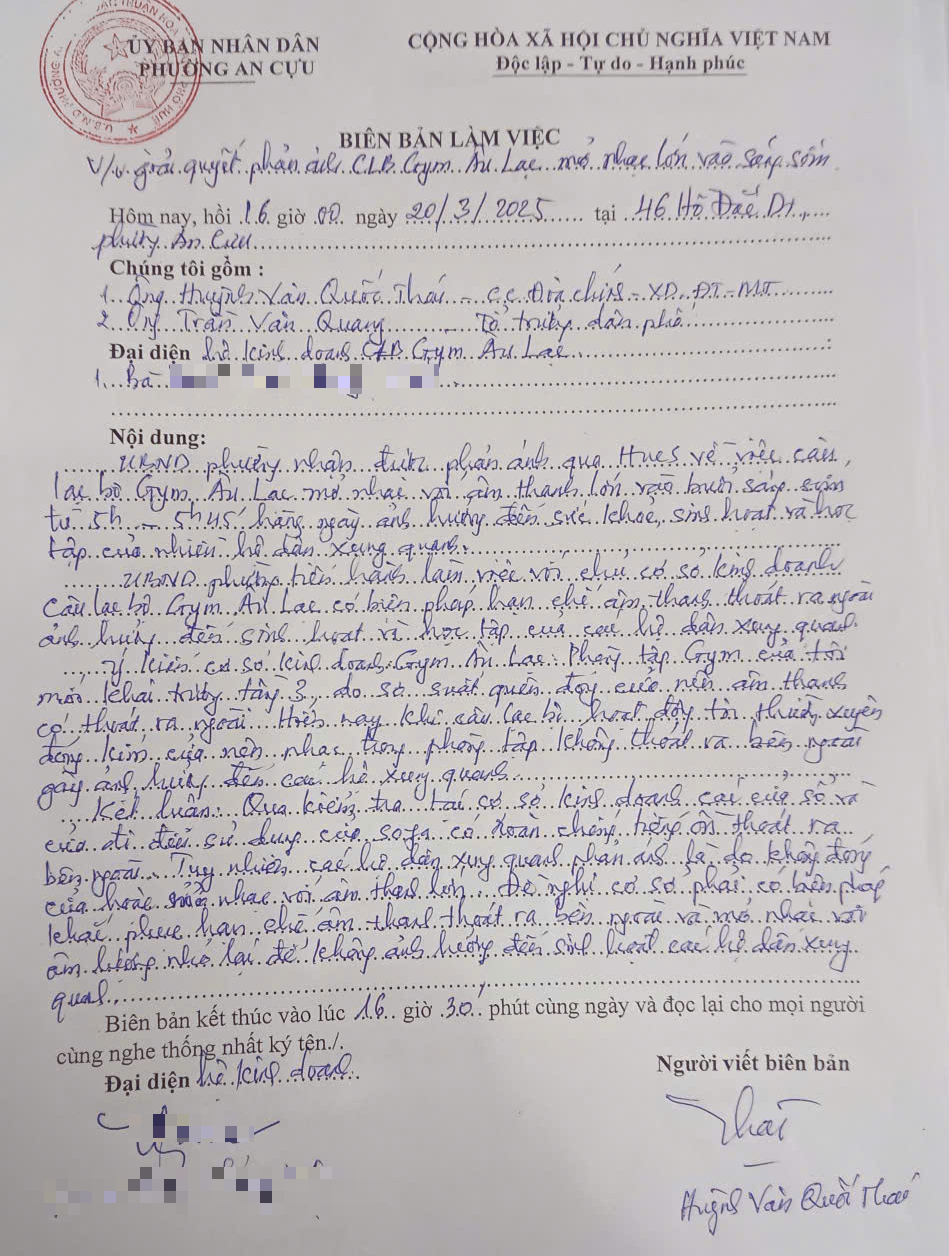 ỦY BAN NHÂN DÂN
PHƯỜNG AN CỰU
CỘNG HÒA XÃ HỘI CHỦ NGHĨA VIỆT NAM
Độc lập - Tự do - Hạnh phúc
BIÊN BẢN LÀM VIỆC
V/v giải quyết phản ánh CLB Gym Âu Lạc mở nhạc lớn vào sáng sớm
Hôm nay, hồi 16 giờ 00 ngày 20/3/2025 tại 46 Hồ Đắc Di,
phường An Cựu
Chúng tôi gồm :
1. Ông Huỳnh Văn Quốc Thái - CC Địa chính - XD - ĐT - MT
2. Ông Trần Văn Quang Tổ trưởng dân phố
Đại diện hộ kinh doanh CLB Gym Âu Lạc
1. Bà
Nội dung:
UBND phường nhận được phản ánh qua HueS về việc câu
lạc bộ Gym Âu Lạc mở nhạc với âm thanh lớn vào buổi sáng sớm
từ 5h - 5h45' hàng ngày ảnh hưởng đến sức khoẻ, sinh hoạt và học
tập của nhiều hộ dân xung quanh.
UBND phường tiến hành làm việc với chủ cơ sở kinh doanh
Câu lạc bộ Gym Âu Lạc có biện pháp hạn chế âm thanh thoát ra ngoài
ảnh hưởng đến sinh hoạt và học tập của các hộ dân xung quanh.
Ý kiến cơ sở kinh doanh Gym Âu Lạc: Phòng tập Gym của tôi
mới khai trương tầng 3, do sơ suất quên đóng cửa nên âm thanh
có thoát ra ngoài. Hiện nay khi câu lạc bộ hoạt động tôi thường xuyên
đóng kín cửa nên nhạc trong phòng tập không thoát ra bên ngoài
gây ảnh hưởng đến các hộ xung quanh.
Kết luận: Qua kiểm tra tại cơ sở kinh doanh các cửa sổ và
cửa đi đều sử dụng cửa có chống ồn thoát ra
bên ngoài. Tuy nhiên các hộ dân xung quanh phản ánh là do không đóng
cửa hoặc nhạc với âm thanh lớn. Đề nghị cơ sở phải có biện pháp
khắc phục hạn chế âm thanh thoát ra bên ngoài và mở nhạc với
âm lượng nhỏ lại để không ảnh hưởng đến sinh hoạt các hộ dân xung
quanh.
Biên bản kết thúc vào lúc 16 giờ 30' phút cùng ngày và đọc lại cho mọi người
cùng nghe thống nhất ký tên./.
Đại diện hộ kinh doanh
Người viết biên bản
Thái
Huỳnh Văn Quốc Thái